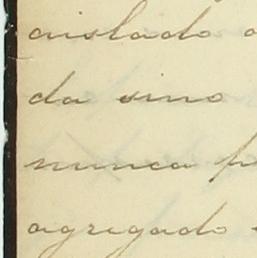 aislado
da sino
nunca
agregado